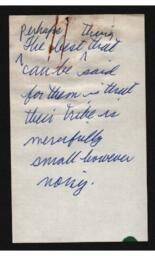 Perhaps thing
The best that
can be said
for them is that
their tribe is
mercifully
small however
noisy.